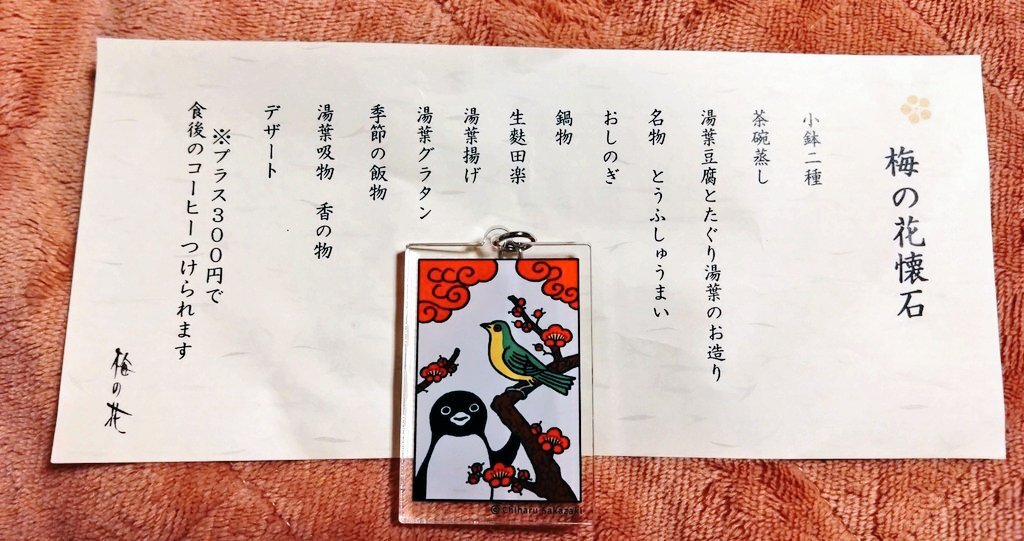 梅の花懐石
小鉢二種
茶碗蒸し
湯葉豆腐とたぐり湯葉のお造り
名物 とうふしゅうまい
おしのぎ
鍋物
生麩田楽
湯葉揚げ
湯葉グラタン
季節の飯物
湯葉吸物 香の物
デザート
※プラス300円で
食後のコーヒーつけられます
梅の花
© Chiharu Sakazaki